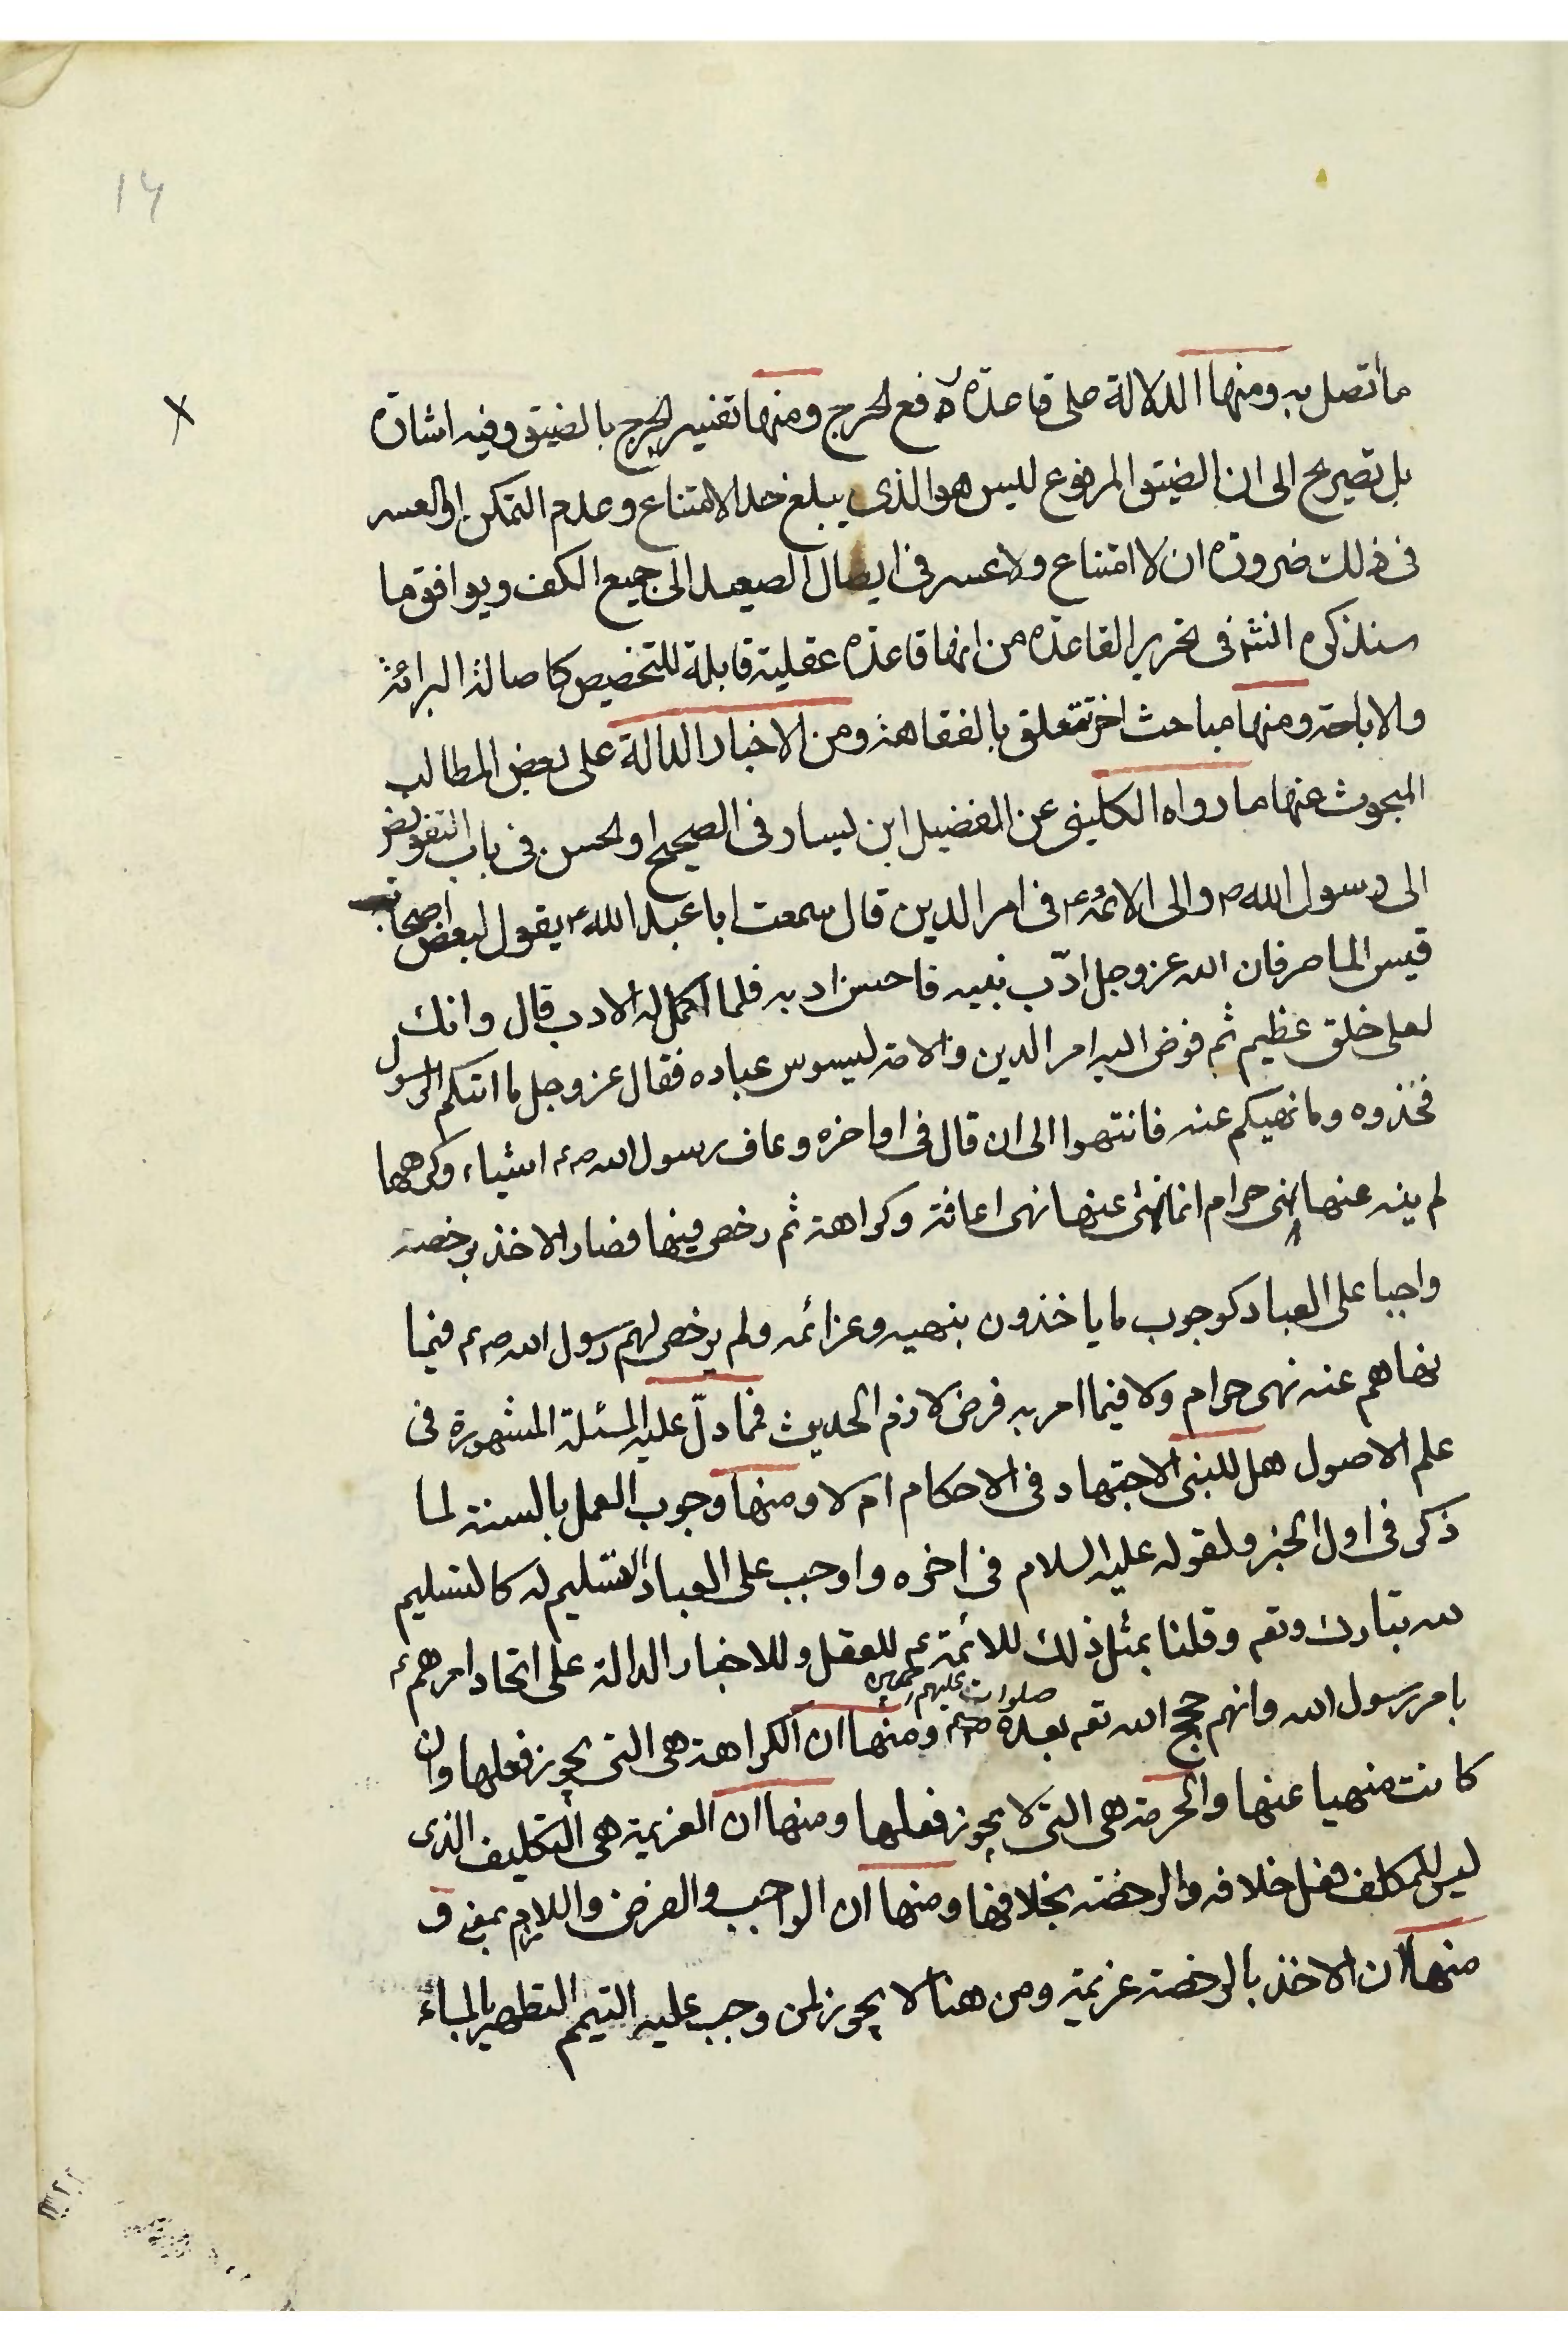 ١٤
ما اتصل به ومنها الدلالة على قاعدة رفع الحرج ومنها تفسير الحرج بالضيق وفيه اشارة
بل تصريح الى ان الضيق المرفوع ليس هو الذى يبلغ حد الامتناع وعدم التمكن او العسر
فى ذلك ضرورة ان لا امتناع ولا عسر فى ايصال الصعيد الى جميع الكف ويوافق ما
سنذكره انش فى تحرير القاعدة من انها قاعدة عقلية قابلة للتخصيص كاصالة البرائة
والاباحة ومنها مباحث اخر تتعلق بالفقاهة ومن الاخبار الدالة على بعض المطالب
المبحوث عنها ما رواه الكلينى عن الفضيل ابن يسار فى الصحيح او الحسن فى باب التفويض
الى رسول الله ص والى الائمة ع فى امر الدين قال سمعت ابا عبد الله ع يقول لبعض اصحاب
قيس الماصر فان الله عز وجل ادّب نبيه فاحسن ادبه فلما اكمل له الادب قال وانك
لعلى خلق عظيم ثم فوض اليه امر الدين والامة ليسوس عباده فقال عز وجل ما اتيكم الرسول
فخذوه وما نهيكم عنه فانتهوا الى ان قال فى اواخره وعاف رسول الله ص اشياء وكرهها
لم ينه عنها نهى حرام انما نهى عنها نهى اعافة وكراهة ثم رخص فيها فصار الاخذ برخصه
واجبا على العباد كوجوب ما ياخذون بنهيه وعزائمه ولم يرخص لهم رسول الله ص فيما
نهاهم عنه نهى حرام ولا فيما امر به فرض لازم الحديث فمما دلّ عليه المسئلة المشهورة فى
علم الاصول هل للنبى الاجتهاد فى الاحكام ام لا ومنها وجوب العمل بالسنة لما
ذكر فى اول الخبر ولقوله عليه السلام فى اخره واوجب على العباد التسليم له كالتسليم
لله تبارك وتعم وقلنا بمثل ذلك للائمة ع للعقل وللاخبار الدالة على اتحاد امرهم ع
بامر رسول الله وانهم حجج الله تعم بعده صلوات عليهم ومنها ان الكراهة هى التى يجوز فعلها وان
كانت منهيا عنها والحرمة هى التى لا يجوز فعلها ومنها ان العزيمة هى التكليف الذى
ليس للمكلف فعل خلافه والرخصة بخلافها ومنها ان الواجب والفرض واللازم بمعنى و
منها ان الاخذ بالرخصة عزيمة ومن هنا لا يجوز لمن وجب عليه التيمم التطهير بالماء